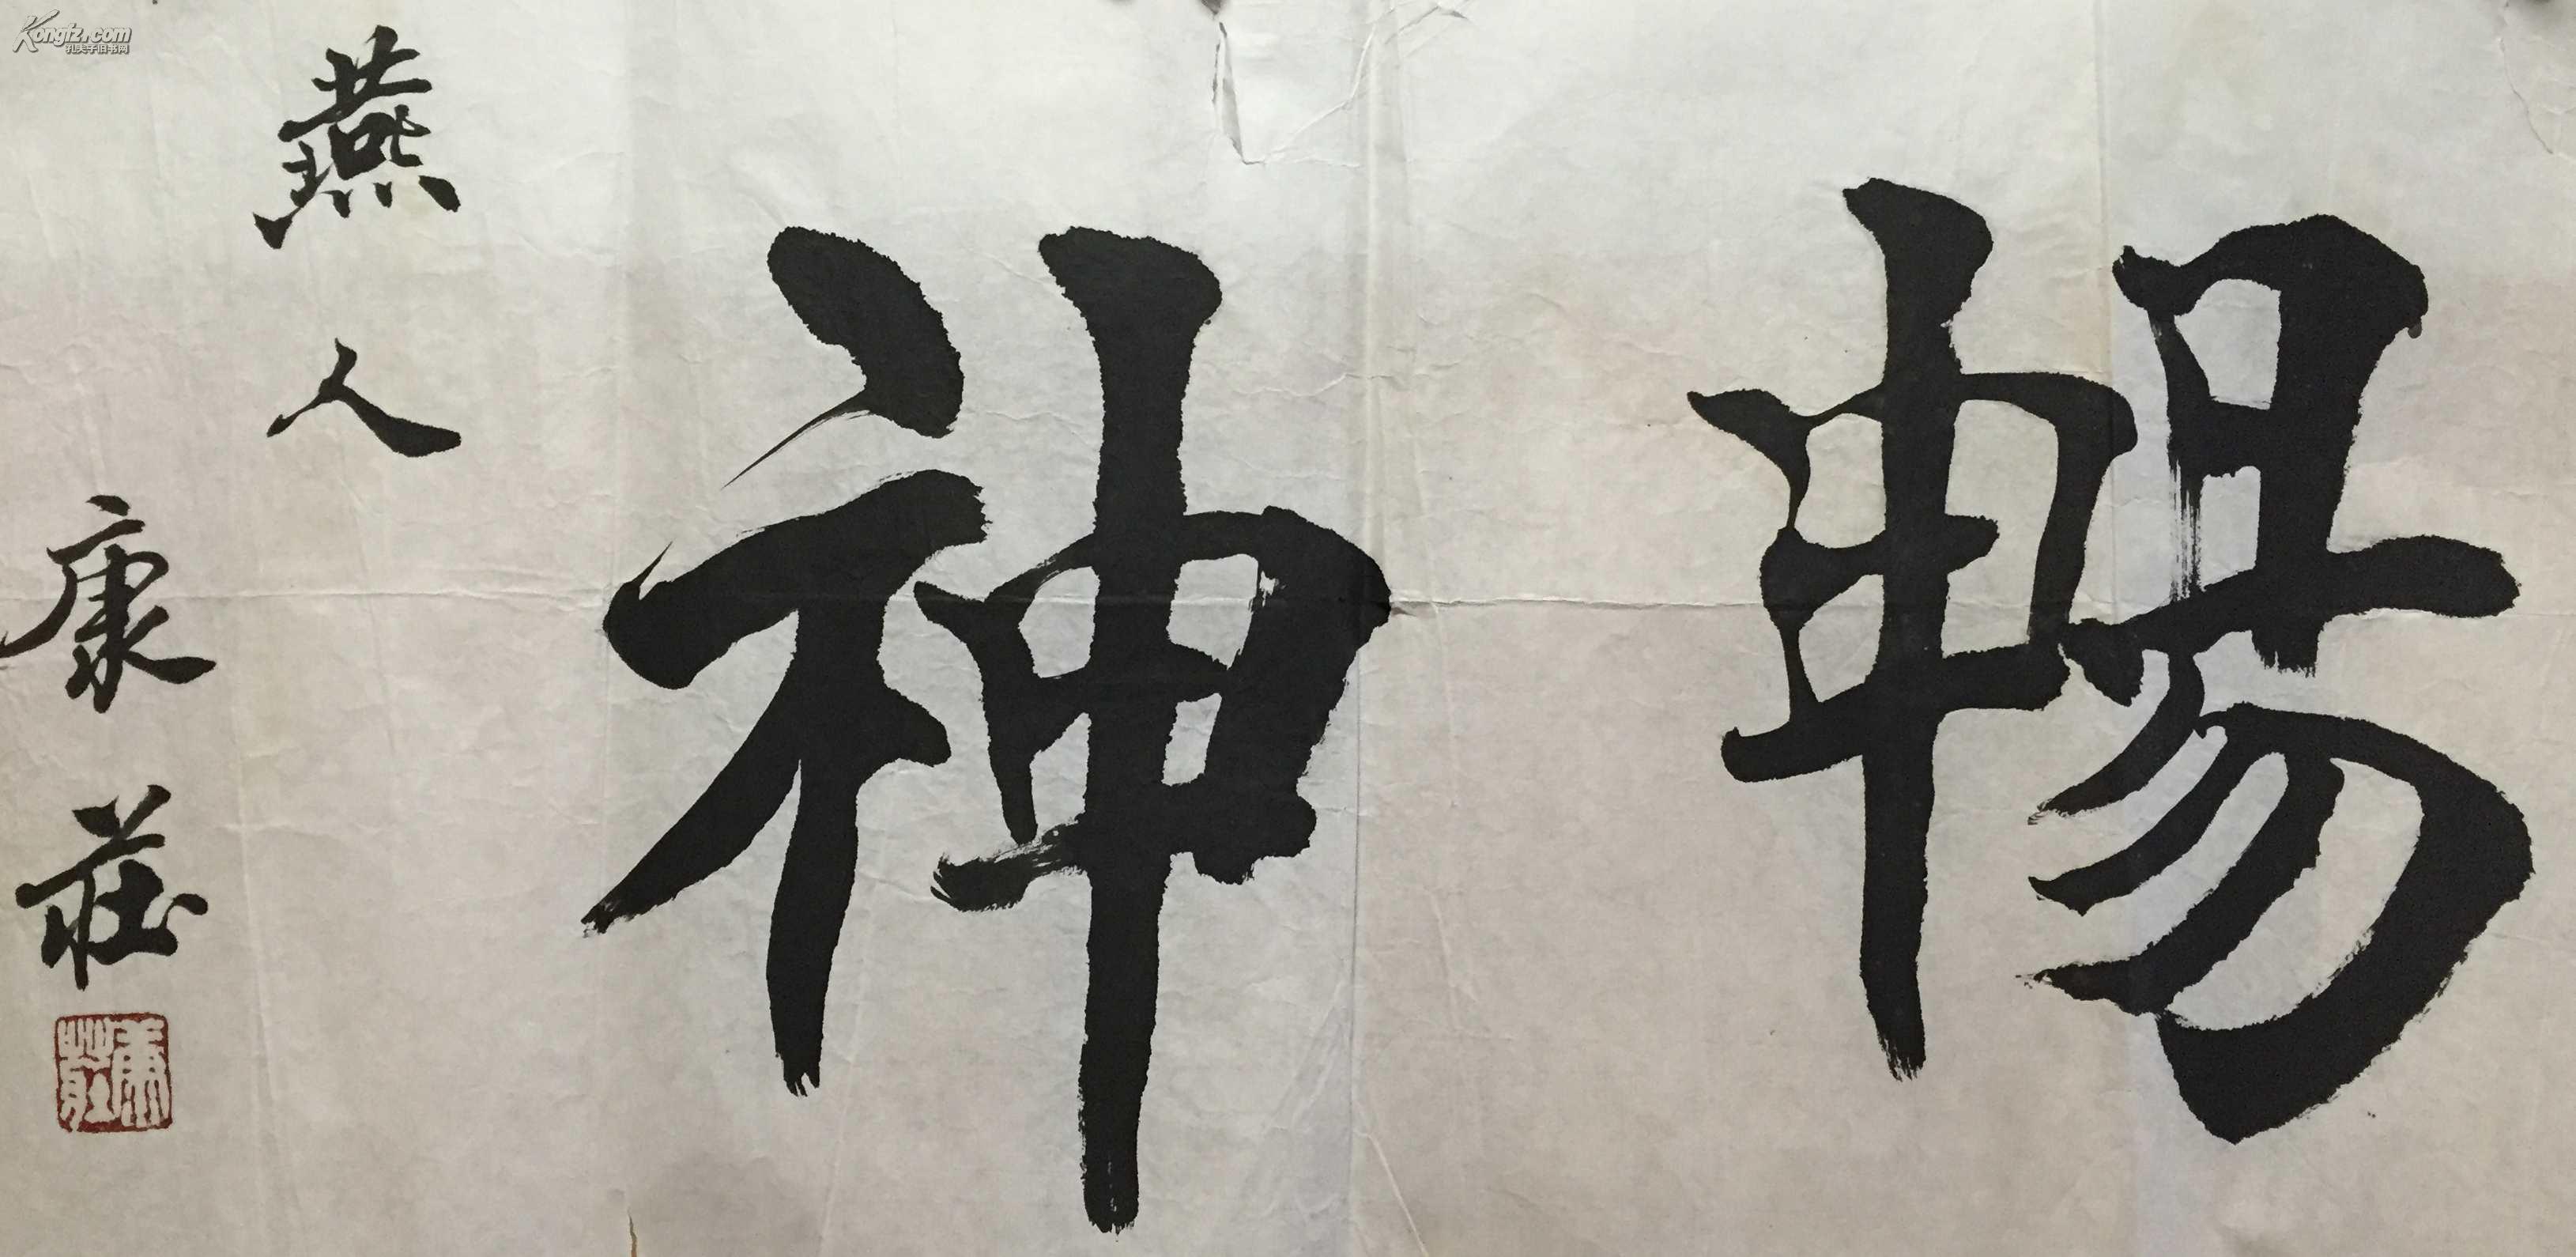 暢神
燕人
康莊
康莊
Kongfz.com
孔夫子旧书网